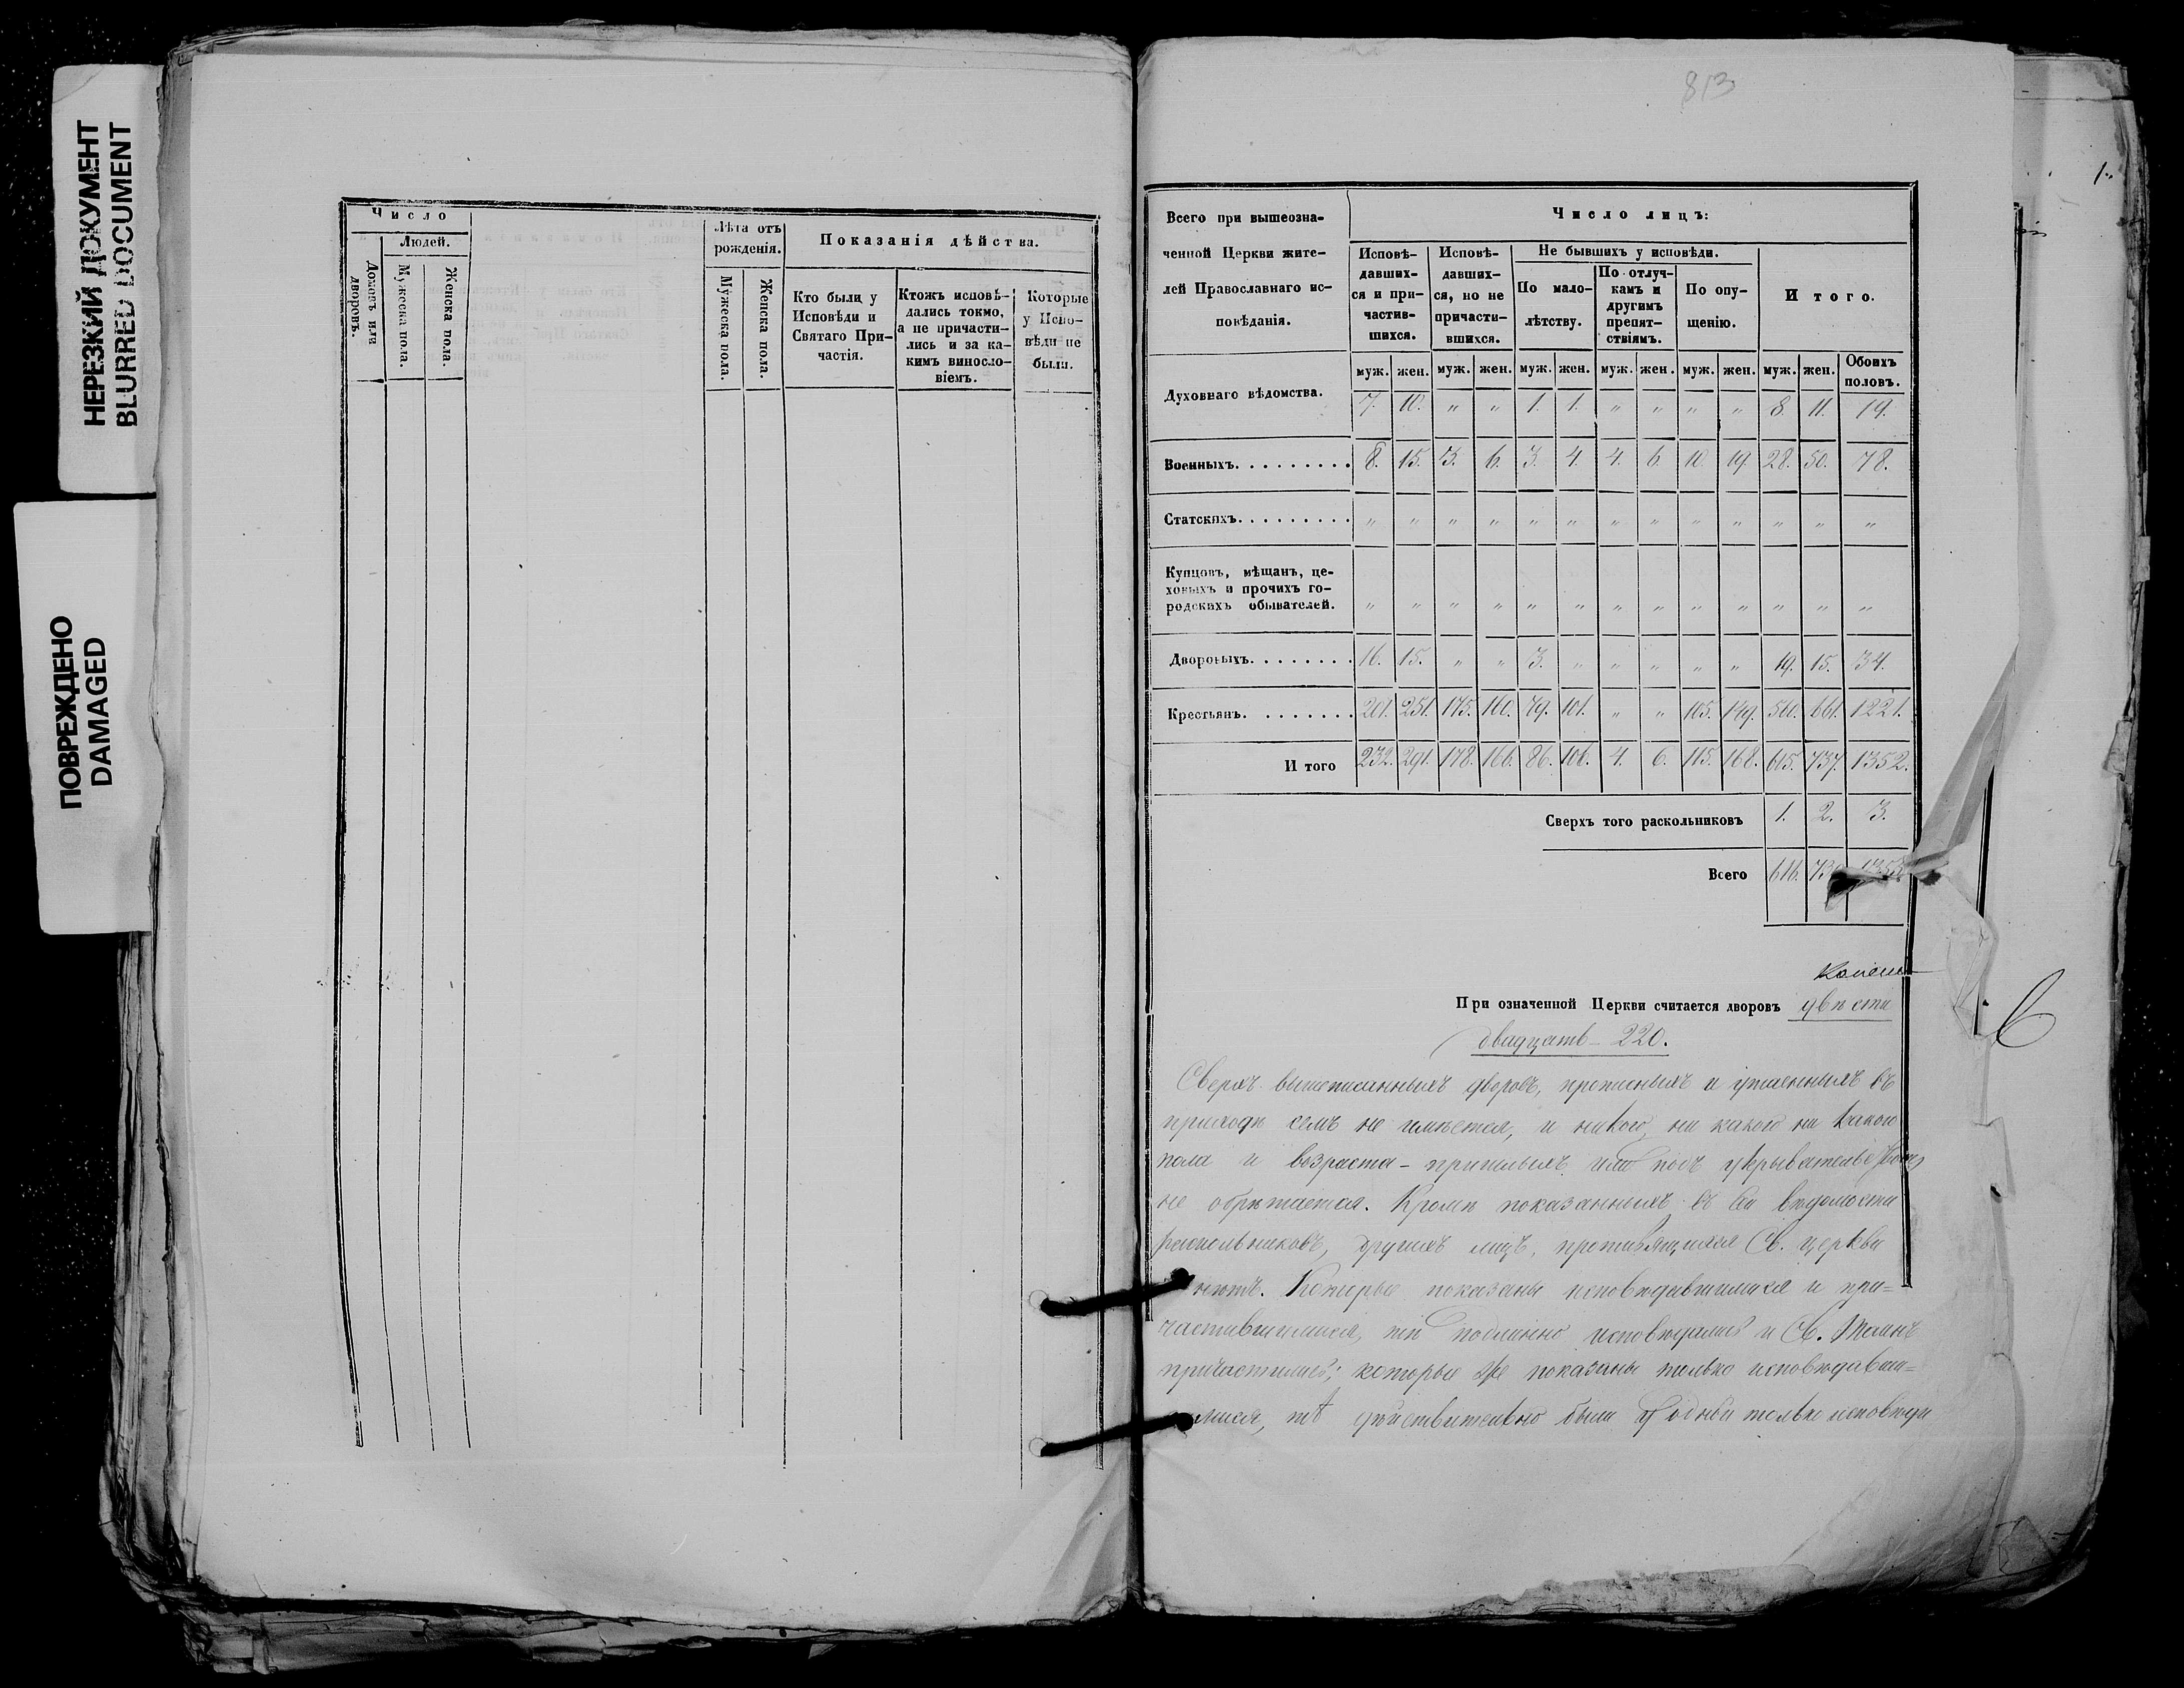 НЕРЕЗКИЙ ДОКУМЕНТ
BLURRED DOCUMENT
ПОВРЕЖДЕНО
DAMAGED
Число
Людей.
Домовъ или дворовъ.
Мужеска пола.
Женска пола.
Лѣта отъ рожденія.
Мужеска пола.
Женска пола.
Показанія дѣйства.
Кто были у Исповѣди и Святаго Причастія.
Ктожъ исповѣдались токмо, а не причастились и за какимъ винословіемъ.
Которые у Исповѣди не были.
813
Всего при вышеозначенной Церкви жителей Православнаго исповѣданія.
Число лицъ:
Исповѣдавшихся и причастившихся.
Исповѣдавшихся, но не причастившихся.
Не бывшихъ у исповѣди.
По малолѣтству.
По отлучкамъ и другимъ препятствіямъ.
По опущенію.
Итого.
муж. жен. муж. жен. муж. жен. муж. жен. муж. жен. муж. жен. Обоихъ половъ.
Духовнаго вѣдомства. 7. 10. " " 1. 1. " " " " 8. 11. 19.
Военныхъ. 8. 15. 3. 6. 3. 4. 4. 6. 10. 19. 28. 50. 78.
Статскихъ. " " " " " " " " " " " " "
Купцовъ, мѣщанъ, цеховыхъ и прочихъ городскихъ обывателей. " " " " " " " " " " " " "
Дворовыхъ. 16. 15. " " 3. " " " " " 19. 15. 34.
Крестьянъ. 201. 251. 175. 160. 79. 101. " " 105. 149. 560. 661. 1221.
Итого 232. 291. 178. 166. 86. 106. 4. 6. 115. 168. 615. 737. 1352.
Сверхъ того раскольниковъ 1. 2. 3.
Всего 616.
При означенной Церкви считается дворовъ двѣсти
двадцать – 220.
Сверхъ вышеписанныхъ дворовъ, прописныхъ и утаенныхъ въ
приходѣ семъ не имѣется, и никого, ни какого ни какого
пола и возраста – пришлыхъ или подъ укрывательствомъ
не обрѣтается. Кромѣ показанныхъ въ сей вѣдомости
раскольниковъ, другихъ лицъ, противящихся Св. церкви
нѣтъ. Которые показаны исповѣдавшимися и при=
частившимися, тѣ подлинно исповѣдались и Св. Таинъ
причастились; которые же показаны только исповѣдавши=
мися, тѣ дѣйствительно были у одной только исповѣди